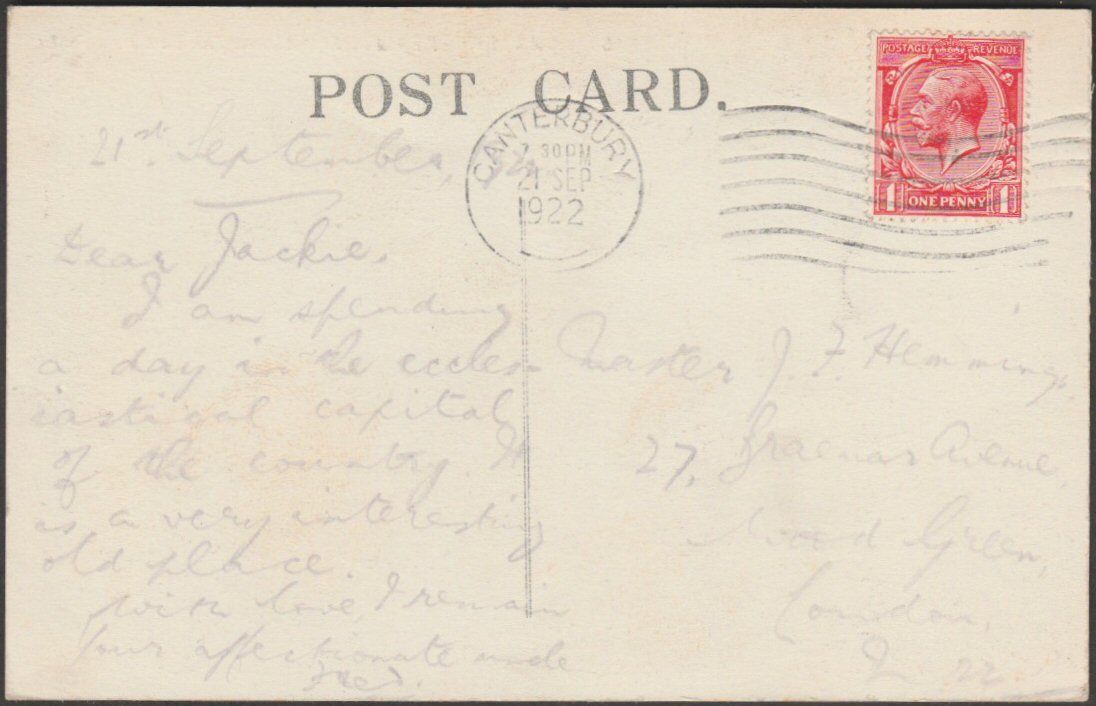 POST CARD.
POSTAGE REVENUE
1 ONE PENNY 1
CANTERBURY
7 30PM
21 SEP
1922
21st September,
Dear Jackie,
I am spending
a day in the eccles-
iastical capital
of the country. It
is a very interesting
old place.
With love, I remain
Your affectionate uncle
Fred.
Master J. F. Hemmings,
27, Braemar Avenue,
Wood Green,
London,
N 22